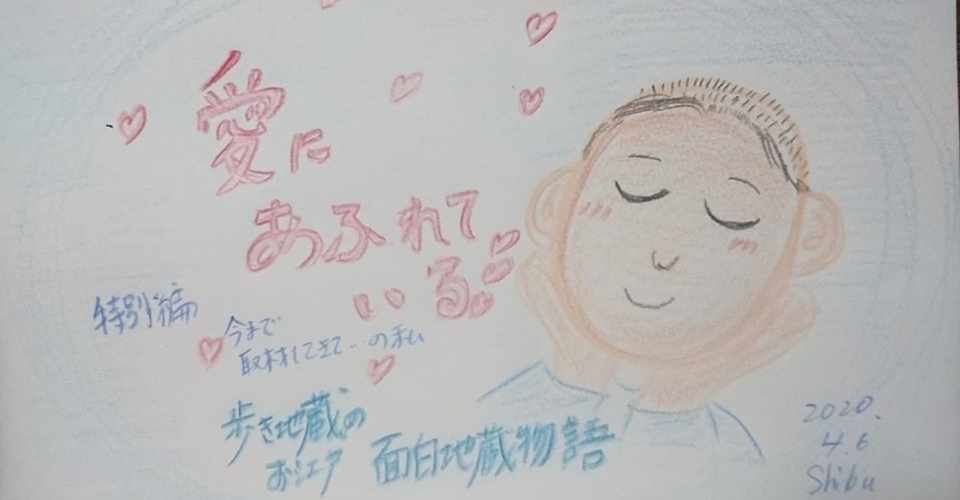 愛に
あふれて
いる
特別編
今まで
取材してきて‥の私
歩き地蔵の
お江戸
面白地蔵物語
2020.
4.6
Shibu